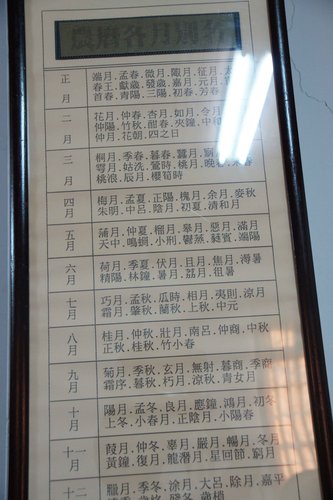 農曆各月別名
正月
端月.孟春.微月.陬月.征月.
春王.獻歲.發歲.嘉月.元月.
首春.青陽.三陽.初春.芳春
二月
花月.仲春.杏月.如月.令月
仲陽.竹秋.酣春.夾鐘.中和
仲月.花朝.四之日
三月
桐月.季春.暮春.蠶月.
雩月.姑洗.鶯時.桃月.晚春.
桃浪.辰月.櫻筍時
四月
梅月.孟夏.正陽.槐月.余月.麥秋
朱明.中呂.陰月.初夏.清和月
五月
蒲月.仲夏.榴月.皋月.惡月.滿月
天中.鳴蜩.小刑.鬱蒸.蕤賓.端陽
六月
荷月.季夏.伏月.且月.焦月.溽暑
精陽.林鐘.暑月.荔月.徂暑
七月
巧月.孟秋.瓜時.相月.夷則.涼月
霜月.肇秋.蘭秋.上秋.中元
八月
桂月.仲秋.壯月.南呂.仲商.中秋
正秋.桂秋.竹小春
九月
菊月.季秋.玄月.無射.暮商.季商
霜序.暮秋.朽月.涼秋.青女月
十月
陽月.孟冬.良月.應鐘.鴻月.初冬
上冬.小春月.正陰月.小陽春
十一月
葭月.仲冬.辜月.嚴月.暢月.冬月
黃鐘.復月.龍潛月.星回節.窮月
十二
臘月.季冬.涂月.大呂.除月.嘉平